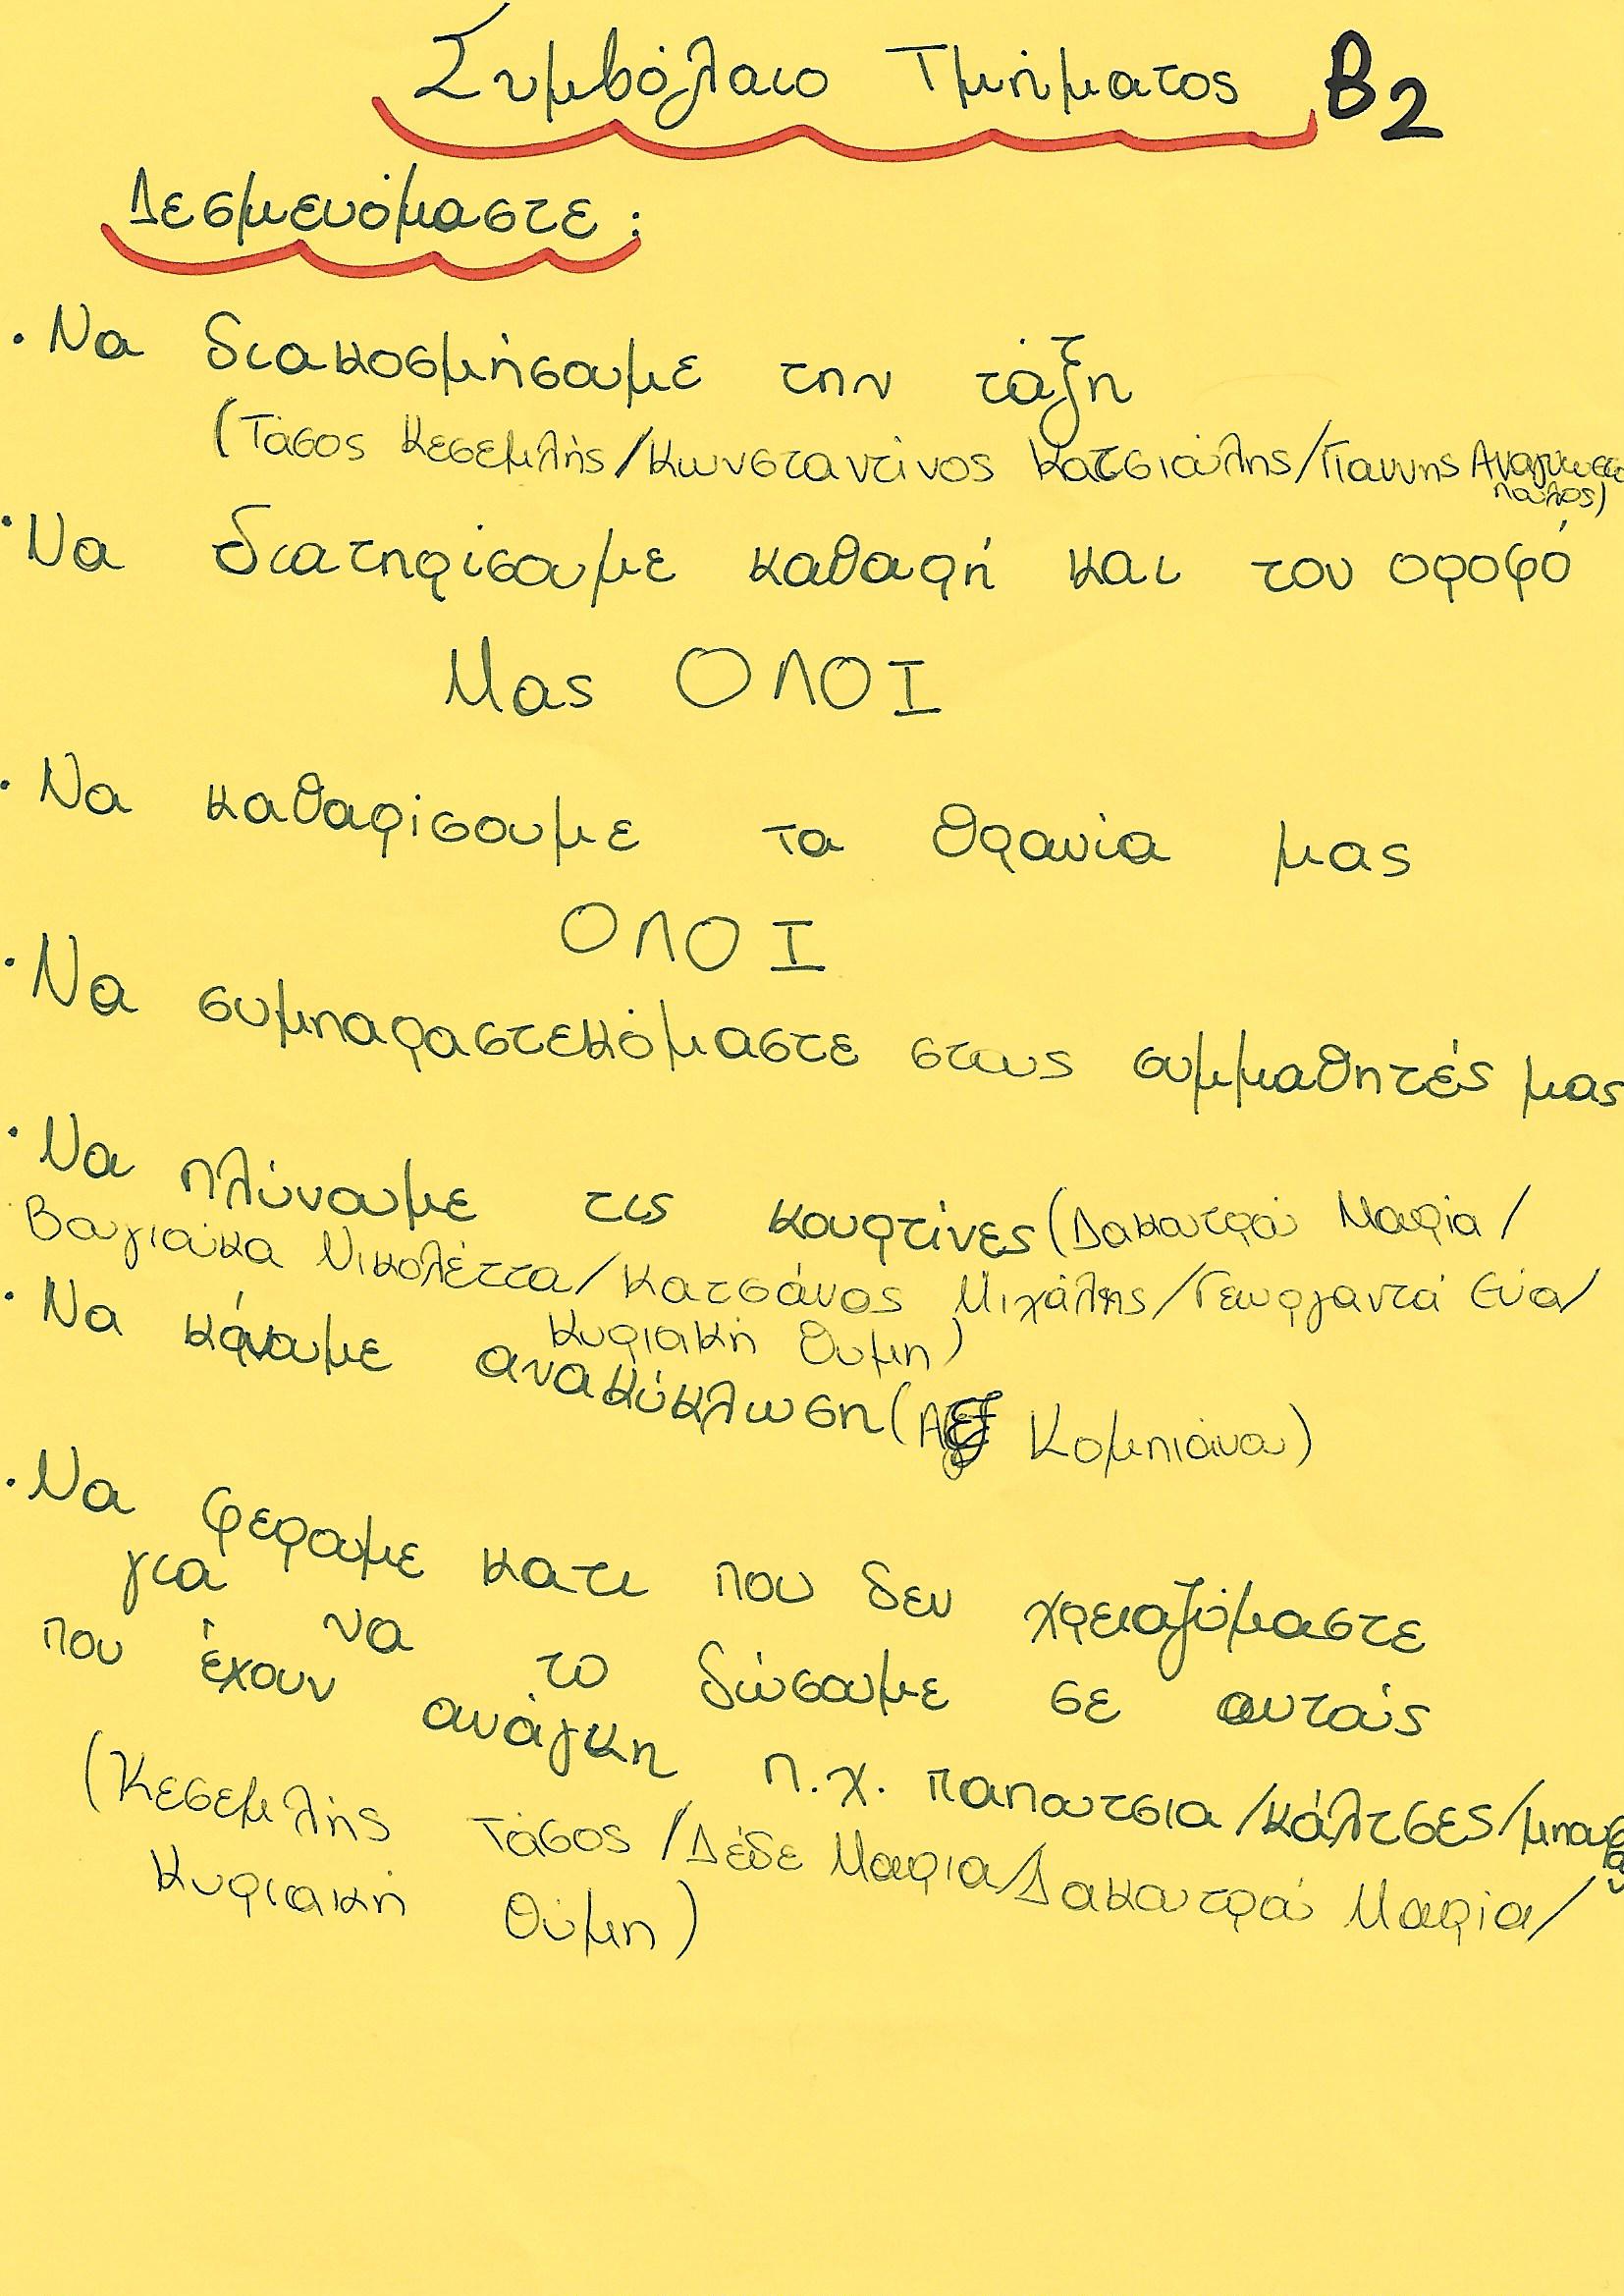 Συμβόλαιο Τμήματος Β2
Δεσμευόμαστε:
· Να διακοσμήσουμε την τάξη
(Τάσος Κεσεμιλής/Κωνσταντίνος Κατσιούλης/Γιαννης Αναγνωστο
πουλος)
· Να διατηρίσουμε καθαρή και τον οροφό
Μας ΟΛΟΙ
· Να καθαρίσουμε τα θρανία μας
ΟΛΟΙ
· Να συμπαραστεκόμαστε στους συμμαθητές μας
· Να πλύνουμε τις κουρτίνες (Δακουτρού Μαρία/
Βαγιούκα Νικολέττα/Κατσάνος Μιχάλης/Γεωργαντά Εύα/
Κυριακή Θυμη)
· Να κάνουμε ανακύκλωση ( Κομπιάνου)
· Να φερουμε κατι που δεν χρειαζόμαστε
για να το δώσουμε σε αυτούς
που έχουν ανάγκη π.χ. παπουτσια/κάλτσες/μπουφάν
(Κεσεμιλής Τάσος/Δέδε Μαρια/Δακουτρού Μαρία/
Κυριακή Θύμη)